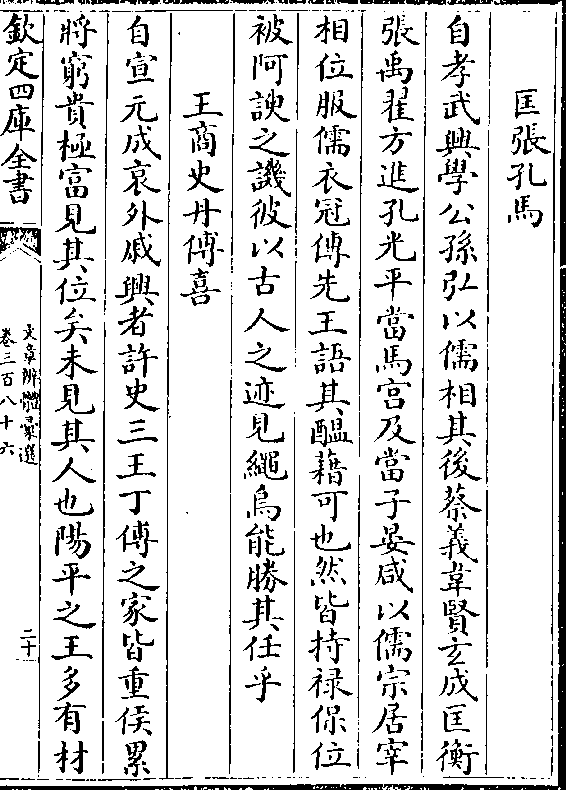 匡張孔馬
自孝武興學公孫弘以儒相其後蔡義韋賢玄成匡衡
張禹翟方進孔光平當馬宫及當子晏咸以儒宗居宰
相位服儒衣冠傳先王語其醖藉可也然皆持禄保位
被阿諛之譏彼以古人之迹見繩烏能勝其任乎
王商史丹傅喜
自宣元成哀外戚興者許史三王丁傅之家皆重侯累
將窮貴極富見其位矣未見其人也陽平之王多有材
欽定四庫全書
文章辨體彙選
卷三百八十六
二十